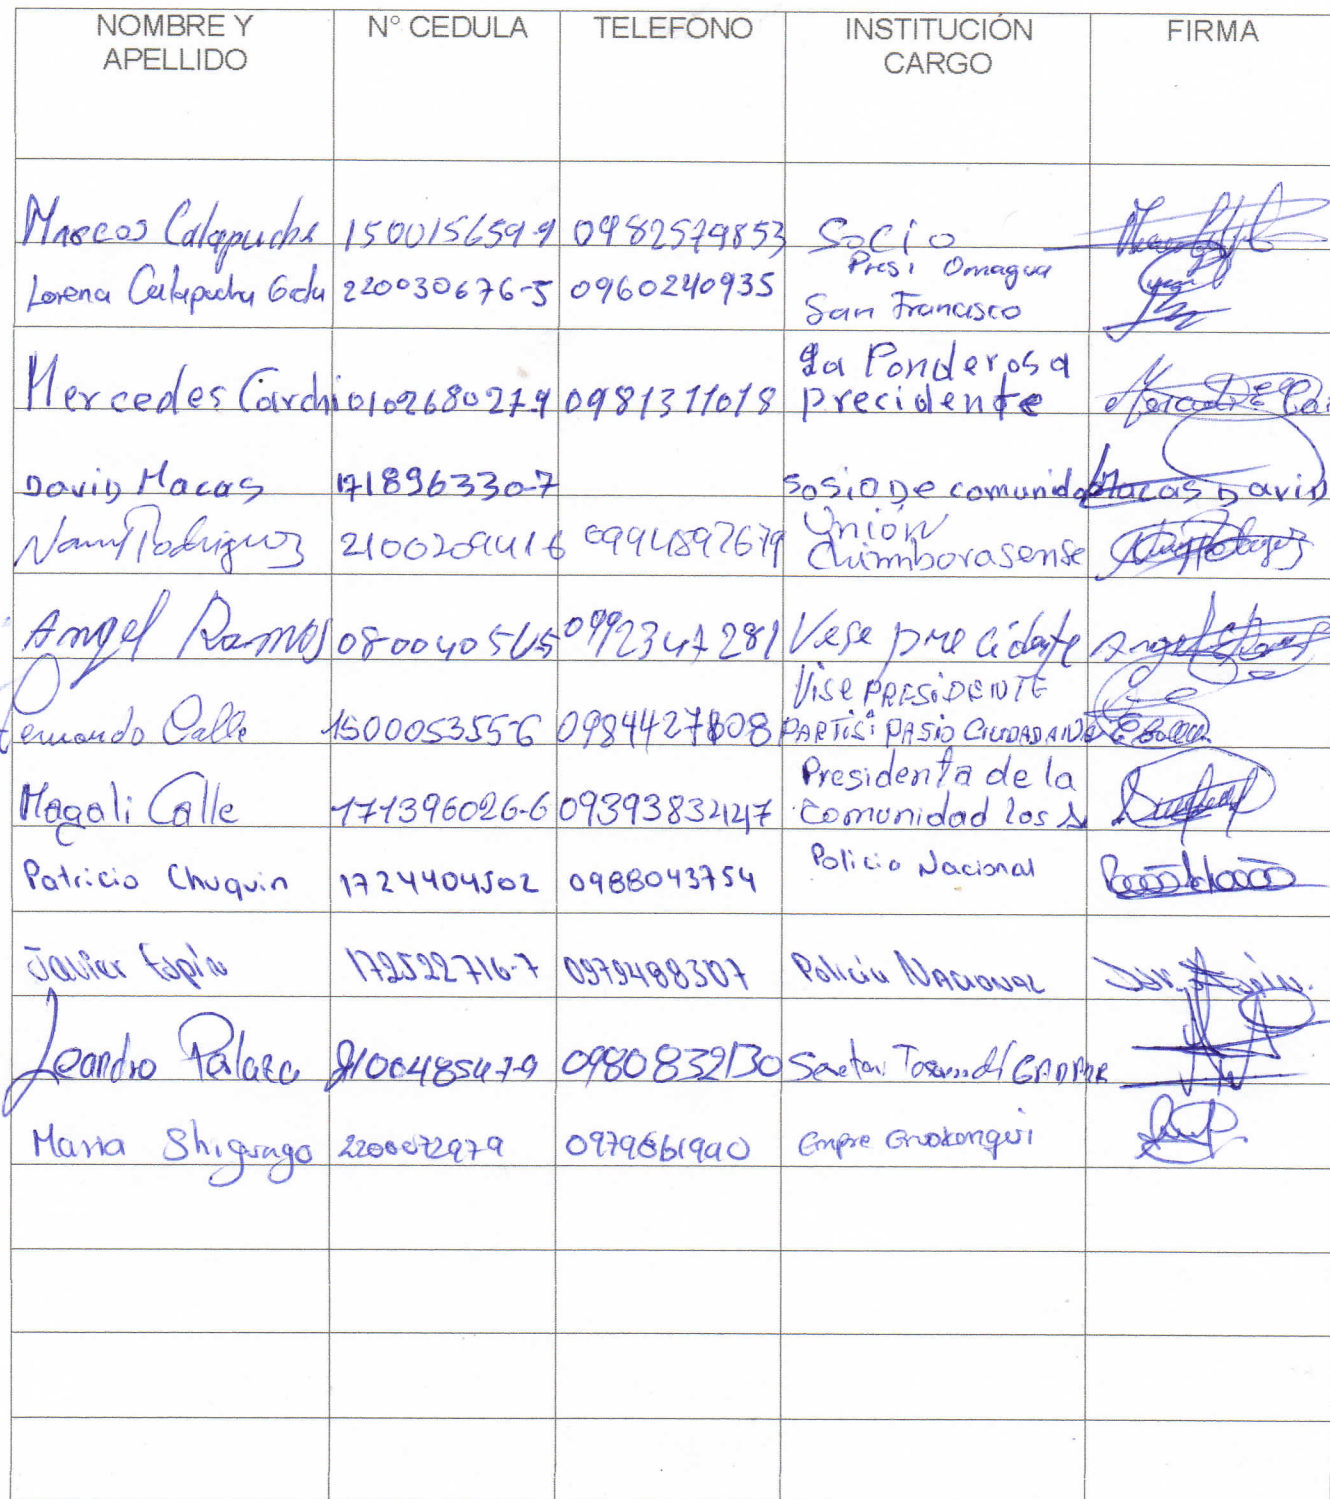 NOMBRE Y APELLIDO N° CEDULA TELEFONO INSTITUCIÓN CARGO FIRMA
Marcos Calapucha 150015659-9 0982579853 Socio
Lorena Calapucha 220030676-5 0960240935 Presi Omagua San Francisco
Mercedes Carchi 0102680279 0981311018 La Ponderosa precidente
David Macas 171896330-7 sosio De comunida Macas David
Rodriguez 2100209416 0994897679 Unión Chimborasense
Angel Ramos 0992347281 Vese precidente
Calle 1500053556 Vise PRESIDENTE PARTISIPASIO CIUDADANA
Magali Calle 171396026-6 Presidenta de la Comunidad los
Patricio Chuquin 1724404502 0988043754 Policia Nacional
Javier Espin 172522716-7 0979488307 Policia Nacional
Leandro 0980832130
Maria Shiguango 0979861990